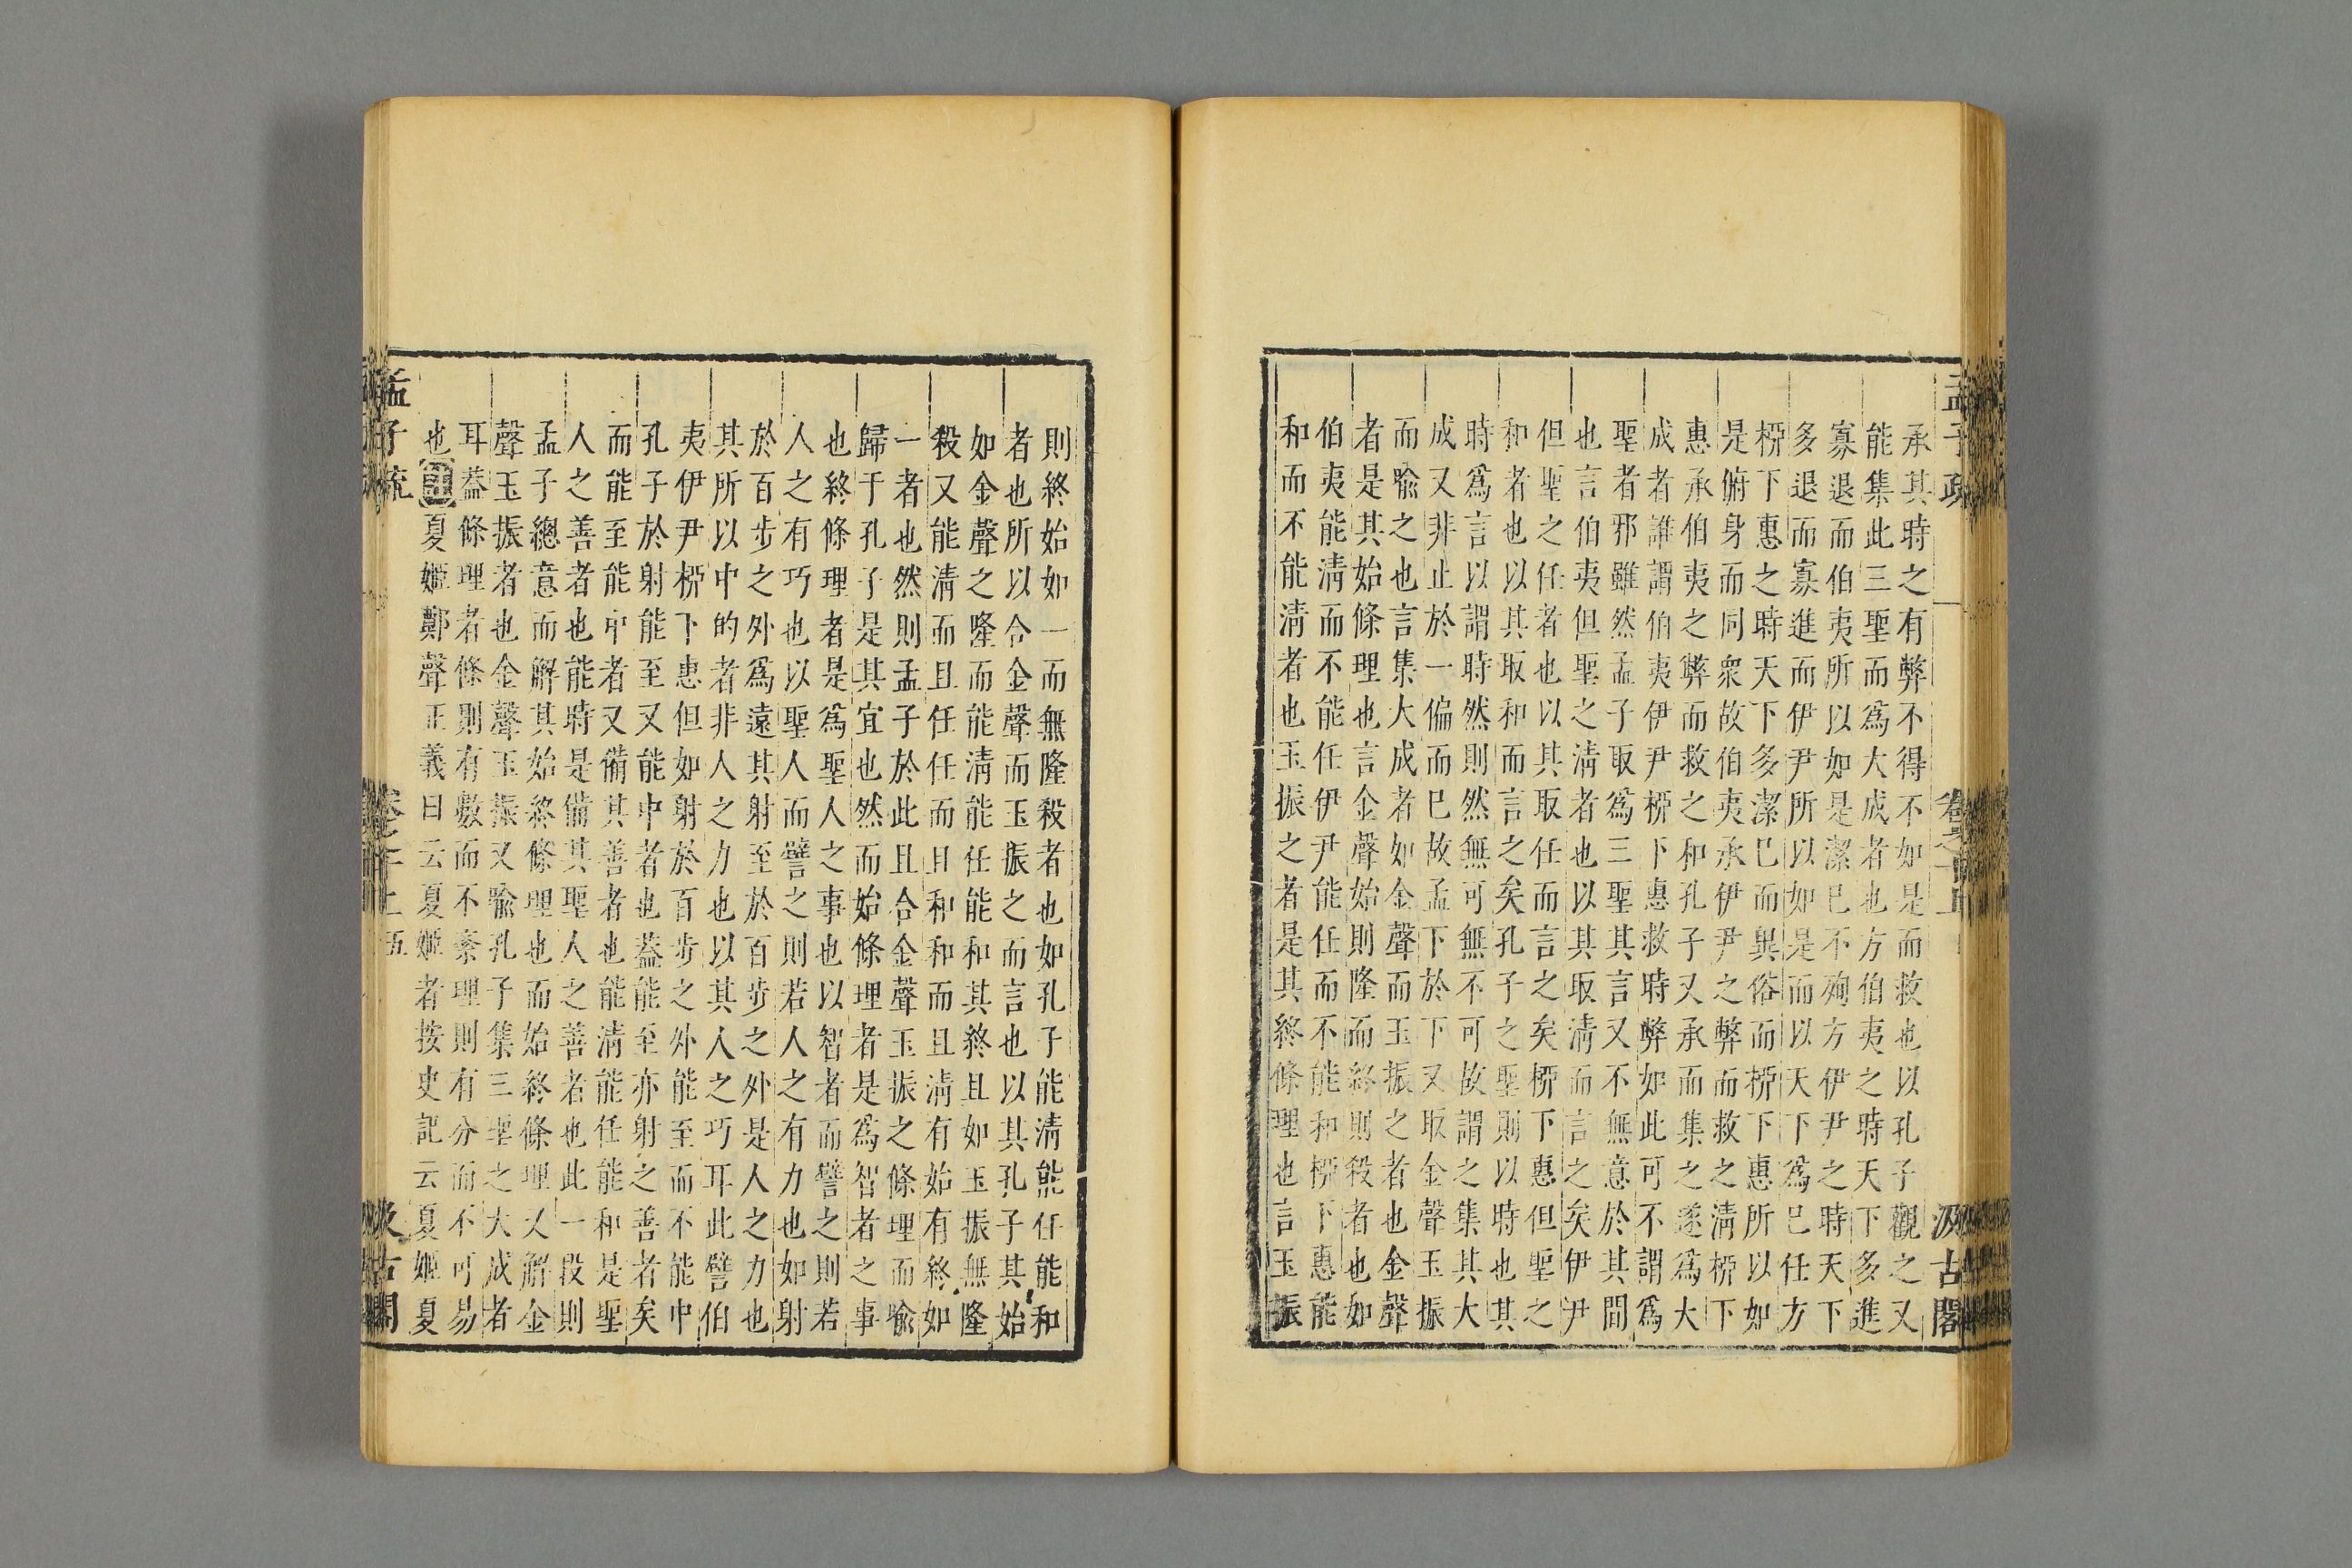 孟子疏 卷之十上 汲古閣
承其時之有弊不得不如是而救也以孔子觀之又
能集此三聖而爲大成者也方伯夷之時天下多進
寡退而伯夷所以如是潔己不殉方伊尹之時天下
多退而寡進而伊尹所以如是而以天下爲己任方
栁下惠之時天下多潔己而異俗而栁下惠所以如
是俯身而同衆故伯夷承伊尹之弊而救之淸栁下
惠承伯夷之弊而救之和孔子又承而集之遂爲大
成者誰謂伯夷伊尹栁下惠救時弊如此可不謂爲
聖者邪雖然孟子取爲三聖其言又不無意於其間
也言伯夷但聖之淸者也以其取淸而言之矣伊尹
但聖之任者也以其取任而言之矣栁下惠但聖之
和者也以其取和而言之矣孔子之聖則以時也其
時爲言以謂時然則然無可無不可故謂之集其大
成又非止於一偏而已故孟下於下又取金聲玉振
而喩之也言集大成者如金聲而玉振之者也金聲
者是其始條理也言金聲始則隆而終則殺者也如
伯夷能淸而不能任伊尹能任而不能和栁下惠能
和而不能淸者也玉振之者是其終條理也言玉振
則終始如一而無隆殺者也如孔子能淸能任能和
者也所以合金聲而玉振之而言也以其孔子其始
如金聲之隆而能淸能任能和其終且如玉振無隆
殺又能淸而且任任而且和和而且淸有始有終如
一者也然則孟子於此且合金聲玉振之條理而喩
歸于孔子是其宜也然而始條理者是爲智者之事
也終條理者是爲聖人之事也以智者而譬之則若
人之有巧也以聖人而譬之則若人之有力也如射
於百步之外爲遠其射至於百步之外是人之力也
其所以中的者非人之力也以其人之巧耳此譬伯
夷伊尹栁下惠但如射於百步之外能至而不能中
孔子於射能至又能中者也葢能至亦射之善者矣
而能至能中者又備其善者也能淸能任能和是聖
人之善者也能時是備其聖人之善者也此一段則
孟子總意而解其始終條理也而始終條理又解金
聲玉振者也金聲玉振又喩孔子集三聖之大成者
耳葢條理者條則有數而不紊理則有分而不可易
也夏姬鄭聲正義曰云夏姬者按史記云夏姬夏
孟子疏 卷之十上 五 汲古閣